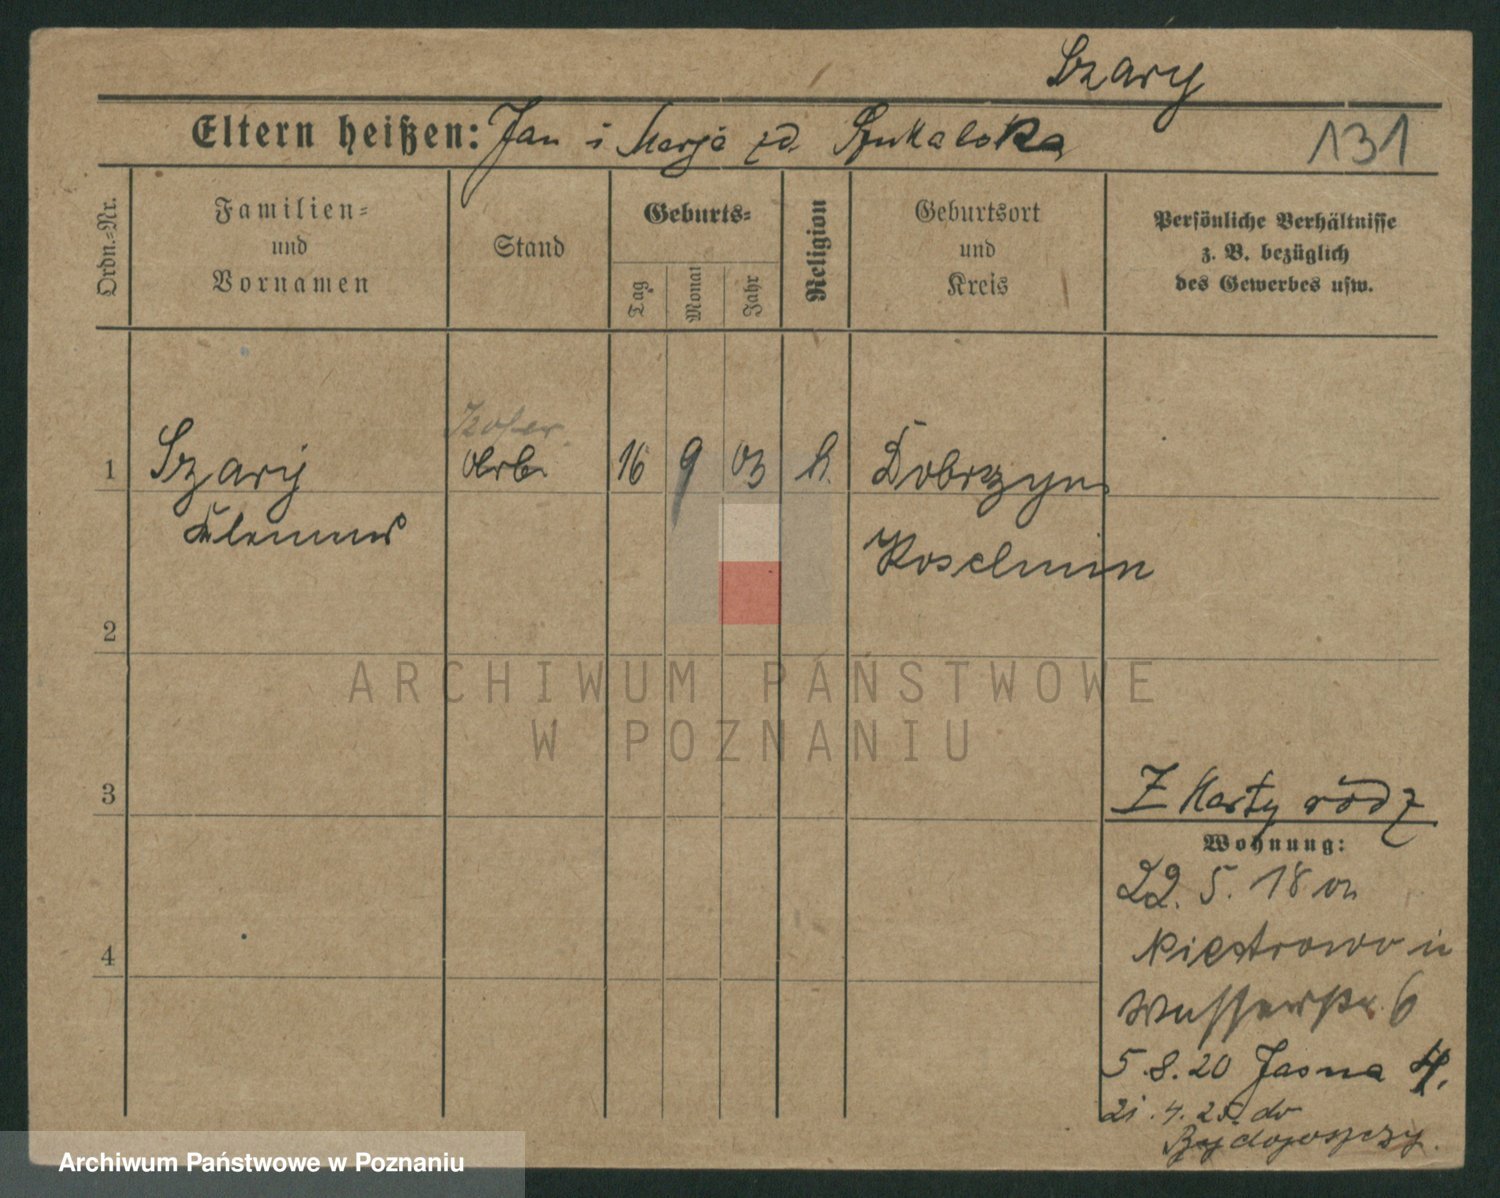 Szary
Eltern heißen: Jan i Marja zd. Szukalska
131
Ordn.-Nr.
Familien-
und
Vornamen
Stand
Geburts-
Tag
Monat
Jahr
Religion
Geburtsort
und
Kreis
Persönliche Verhältnisse
z. B. bezüglich
des Gewerbes usw.
1 Szary Arb. 16 9 03 k. Dobrzyn
Klemens
Koschmin
2
3
4
Z Karty rodz
Wohnung:
22. 5. 18 von
Pietrowo in
Wasserstr. 6
5. 8. 20 Jasna 4.
21. 4. 25. do
Bydgoszczy.
ARCHIWUM PAŃSTWOWE
W POZNANIU
Archiwum Państwowe w Poznaniu